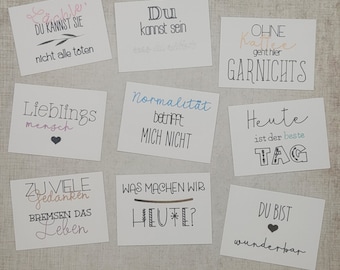 Lächle
DU KANNST SIE
nicht alle töten
Du
kannst sein
OHNE
Kaffee
geht hier
GARNICHTS
Lieblings
mensch
Normalität
betrifft
MICH NICHT
Heute
ist der beste
TAG
ZU VIELE
Gedanken
BREMSEN DAS
Leben
WAS MACHEN WIR
HEUTE?
DU BIST
wunderbar